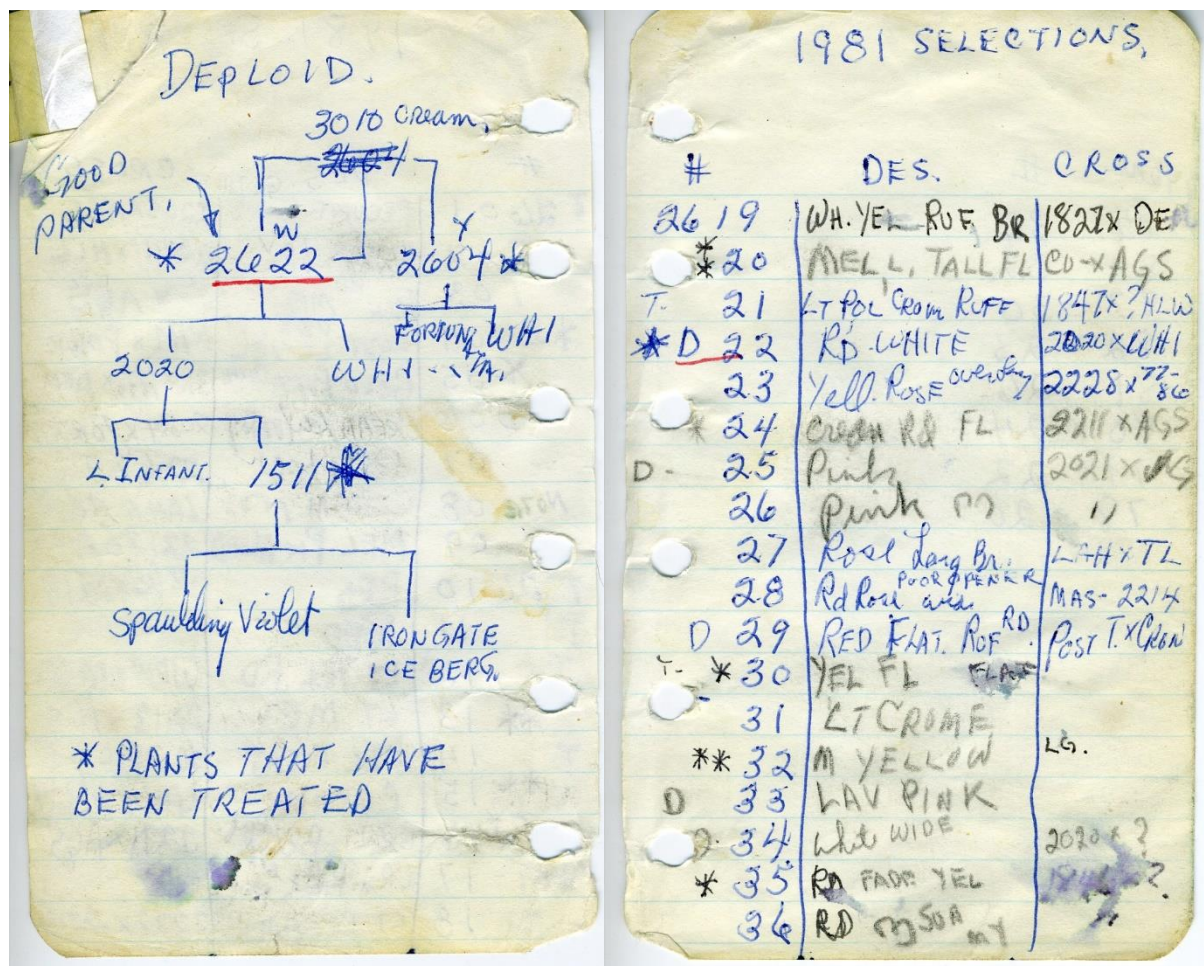 DEPLOID.
3010 Cream,
2604
GOOD
PARENT,
W
X
* 2622
2604 *
FORTUN WHI
2020
WHI
TA.
L. INFANT.
1511 *
Spaulding Violet
IRONGATE
ICE BERG.
* PLANTS THAT HAVE
BEEN TREATED
1981 SELECTIONS,
# DES. CROSS
2619 WH. YEL RUF. BR 1827X DE
** 20 MELL, TALL FL CO-X AGS
T. 21 LT POL CROM RUFF 1847X ? HLW
* D 22 RD. WHITE 2020 X WHI
23 Yell. ROSE 2228 X 77-86
* 24 Cream Rd FL 2211 X AGS
D - 25 Pink 2021 X AG
26 Pink "
27 Rose Lang Br. LAH X TL
POOR OPENER
28 Rd Rose MAS- 2214
D 29 RED FLAT. ROF RD. POST T. X CRON
T- * 30 YEL FL FLAT
31 LT CROME
** 32 M YELLOW LG.
D 33 LAV PINK
D 34 White WIDE 2020 X ?
* 35 RD FADE YEL ?
36 RD "